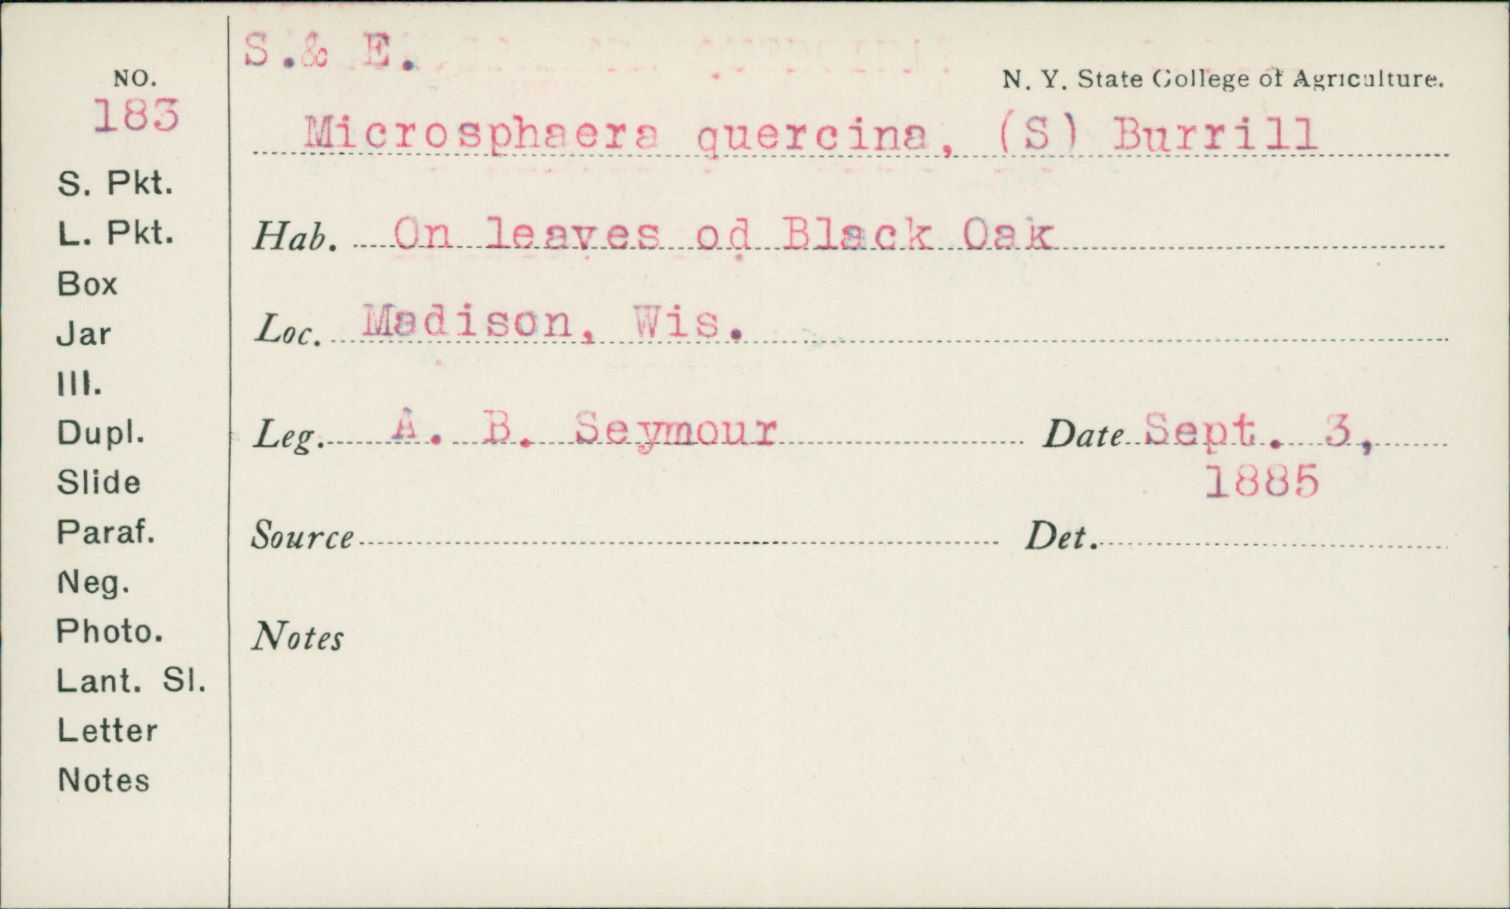 S.& E.
N. Y. State College of Agriculture.
NO.
183
Microsphaera quercina, (S) Burrill
S. Pkt.
L. Pkt.
Box
Jar
Ill.
Dupl.
Slide
Paraf.
Neg.
Photo.
Lant. Sl.
Letter
Notes
Hab. On leaves od Black Oak
Loc. Madison, Wis.
Leg. A. B. Seymour Date Sept. 3,
1885
Source Det.
Notes